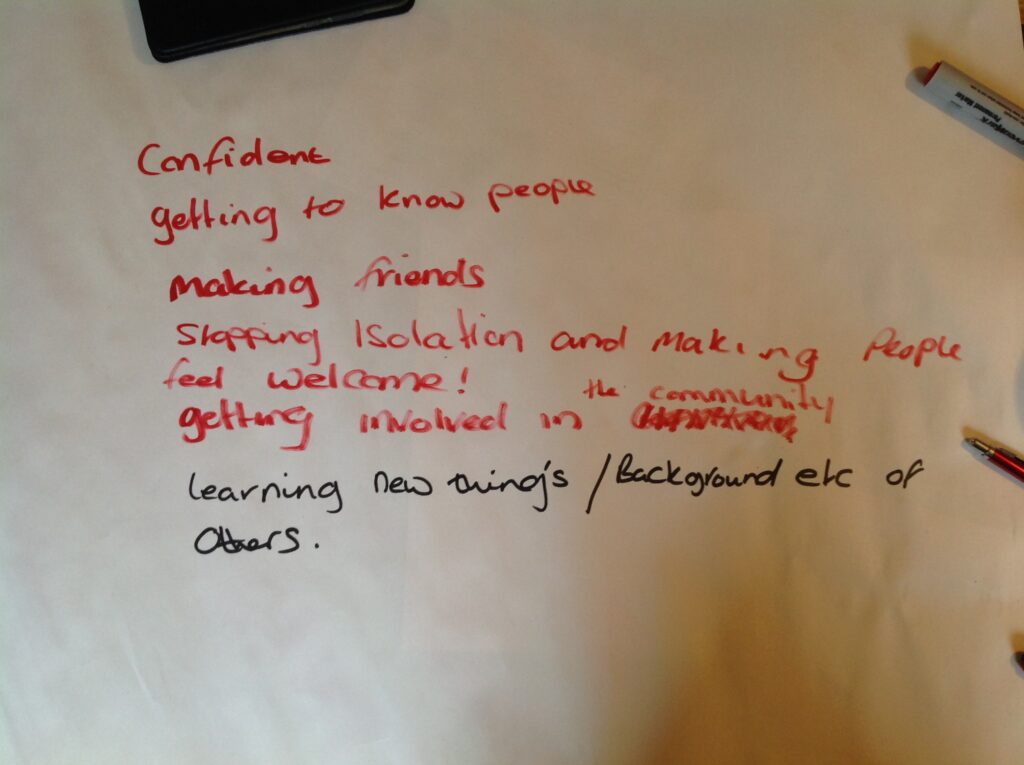 Confident
getting to know people
Making friends
Stopping Isolation and Making People
feel welcome!
getting involved in the community
learning new thing's / Background etc of
Others.
Permanent Marker